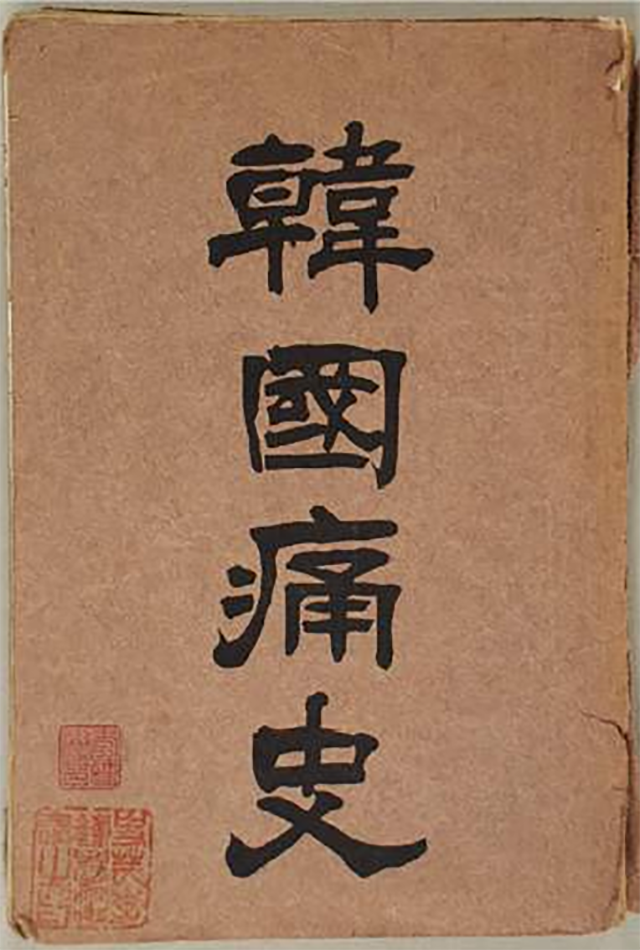 韓國痛史